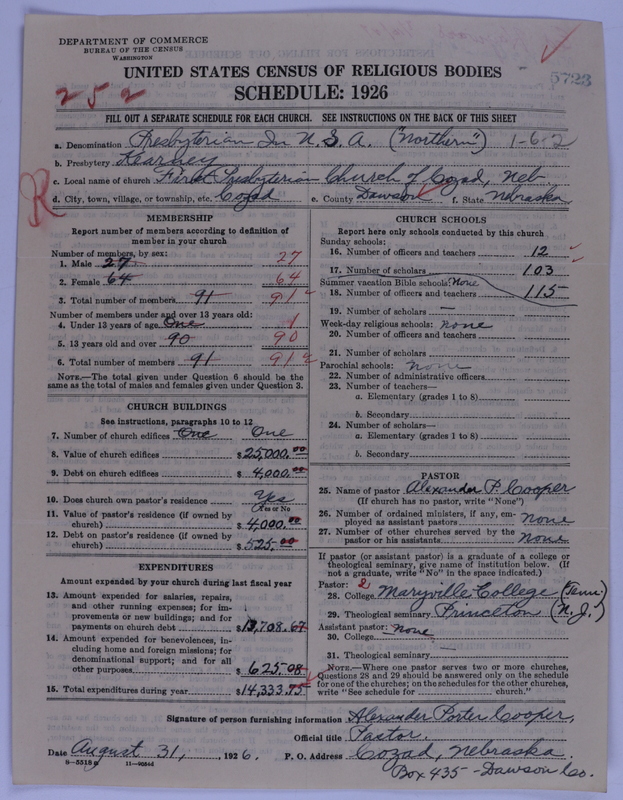 DEPARTMENT OF COMMERCE
BUREAU OF THE CENSUS
WASHINGTON
UNITED STATES CENSUS OF RELIGIOUS BODIES
5723
SCHEDULE: 1926
252
FILL OUT A SEPARATE SCHEDULE FOR EACH CHURCH. SEE INSTRUCTIONS ON THE BACK OF THIS SHEET
a. Denomination Presbyterian In U.S.A. ("Northern") 1-6-2
b. Presbytery Kearney
c. Local name of church First Presbyterian Church of Cozad, Neb
R
d. City, town, village, or township, etc. Cozad e. County Dawson f. State Nebraska
MEMBERSHIP
Report number of members according to definition of member in your church
Number of members, by sex:
1. Male 27 27
2. Female 64 64
3. Total number of members 91 91
Number of members under and over 13 years old:
4. Under 13 years of age One 1
5. 13 years old and over 90 90
6. Total number of members 91 91
NOTE.—The total given under Question 6 should be
same as the total of males and females given under Question 3.
CHURCH BUILDINGS
See instructions, paragraphs 10 to 12
7. Number of church edifices One One
8. Value of church edifices $25,000.00
9. Debt on church edifices $4,000.00
10. Does church own pastor's residence Yes
Yes or No
11. Value of pastor's residence (if owned by
church) $4,000.00
12. Debt on pastor's residence (if owned by
church) $525.00
EXPENDITURES
Amount expended by your church during last fiscal year
13. Amount expended for salaries, repairs,
and other running expenses; for im-
provements or new buildings; and for
payments on church debt 13,708.67
14. Amount expended for benevolences, in-
cluding home and foreign missions; for
denominational support; and for all
other purposes $625.08
15. Total expenditures during year $14,333.75
CHURCH SCHOOLS
Report here only schools conducted by this church
Sunday schools:
16. Number of officers and teachers 12
17. Number of scholars 103
Summer vacation Bible schools: None
18. Number of officers and teachers 115
19. Number of scholars —
Week-day religious schools: none
20. Number of officers and teachers
21. Number of scholars
Parochial schools: none
22. Number of administrative officers
23. Number of teachers—
a. Elementary (grades 1 to 8)
b. Secondary
24. Number of scholars—
a. Elementary (grades 1 to 8)
b. Secondary
PASTOR
25. Name of pastor Alexander P. Cooper
(If church has no pastor, write "None")
26. Number of ordained ministers, if any, em-
ployed as assistant pastors none
27. Number of other churches served by the
pastor or his assistants none
If pastor (or assistant pastor) is a graduate of a college or
theological seminary, give name of institution below. (If
not a graduate, write "No" in the space indicated.)
Pastor: 2
28. College Maryville College (Tenn.)
29. Theological seminary Princeton (N.J.)
Assistant pastor: None
30. College
31. Theological seminary
NOTE.—Where one pastor serves two or more churches,
Questions 28 and 29 should be answered only on the schedule
for one of the churches; on the schedules for the other churches,
write "See schedule for church."
Signature of person furnishing information Alexander Porter Cooper,
Official title Pastor.
Date August 31, 1926. P. O. Address Cozad, Nebraska.
8-5518g 11-9056d Box 435 - Dawson Co.